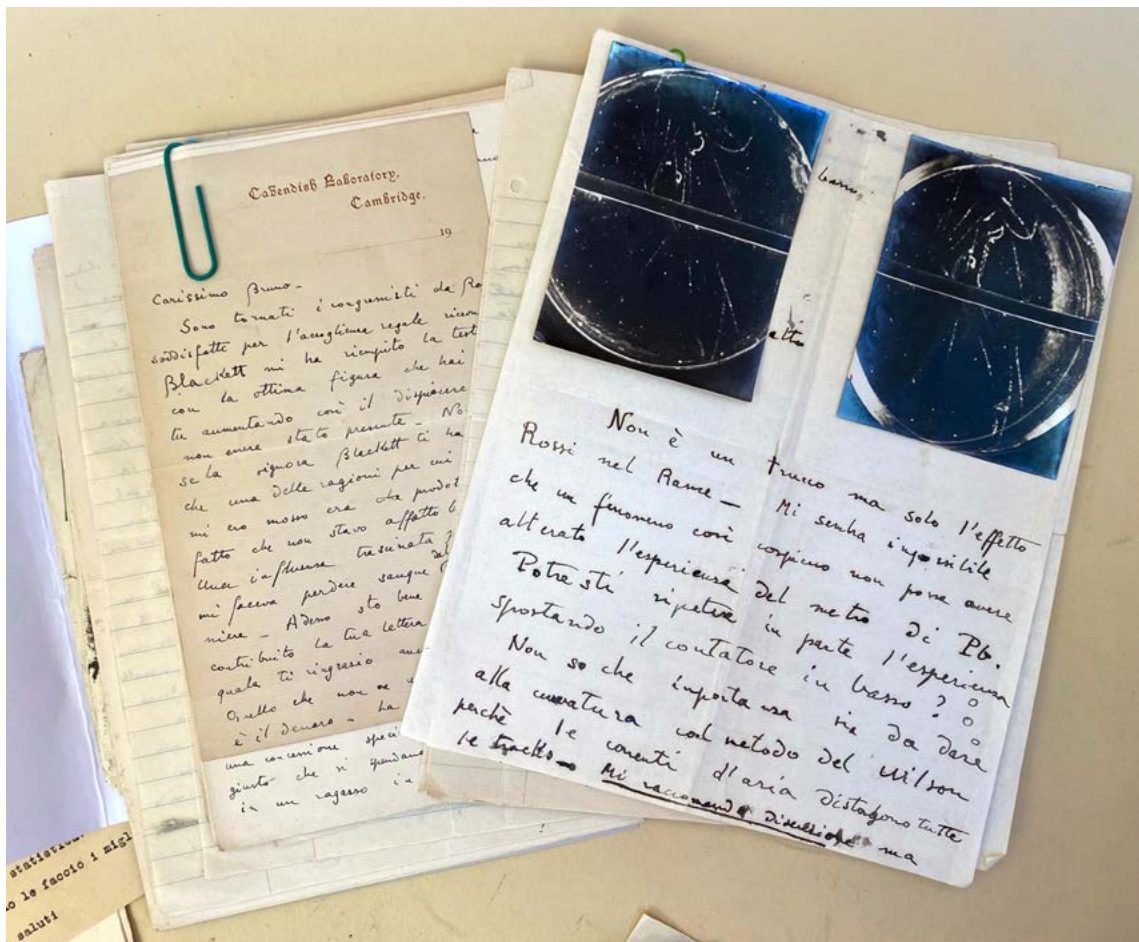 Cavendish Laboratory.
Cambridge.
19
Carissimo Bruno -
Sono tornati i congressisti da Ro
soddisfatti per l'accoglienza regale ricev
Blackett mi ha riempito la test
con la ottima figura che hai
tu aumentando così il dispiacere
non essere stato presente - No
se la signora Blackett ti ha
che una delle ragioni per cui
mi ero mosso era da prodot
fatto che non stavo affatto b
Una influenza trascinata
mi faceva perdere sangue dal
niere - Adesso sto bene
contribuito la tua lettera
quale ti ringrazio
Quello che non
è il denaro - ha
una concessione speci
giusto che si spendano
in un ragazzo in
basso
atto
Non è un trucco ma solo l'effetto
Rossi nel Rame - Mi sembra impossibile
che un fenomeno così cospicuo non possa avere
alterato l'esperienza del metro di Pb.
Potresti ripetere in parte l'esperienza
spostando il contatore in basso?
Non so che importanza sia da dare
alla curvatura col metodo del Wilson
perchè le correnti d'aria distorgono tutte
le tracks - Mi raccomando discrezione ma
statistic
o le faccio i migl
saluti